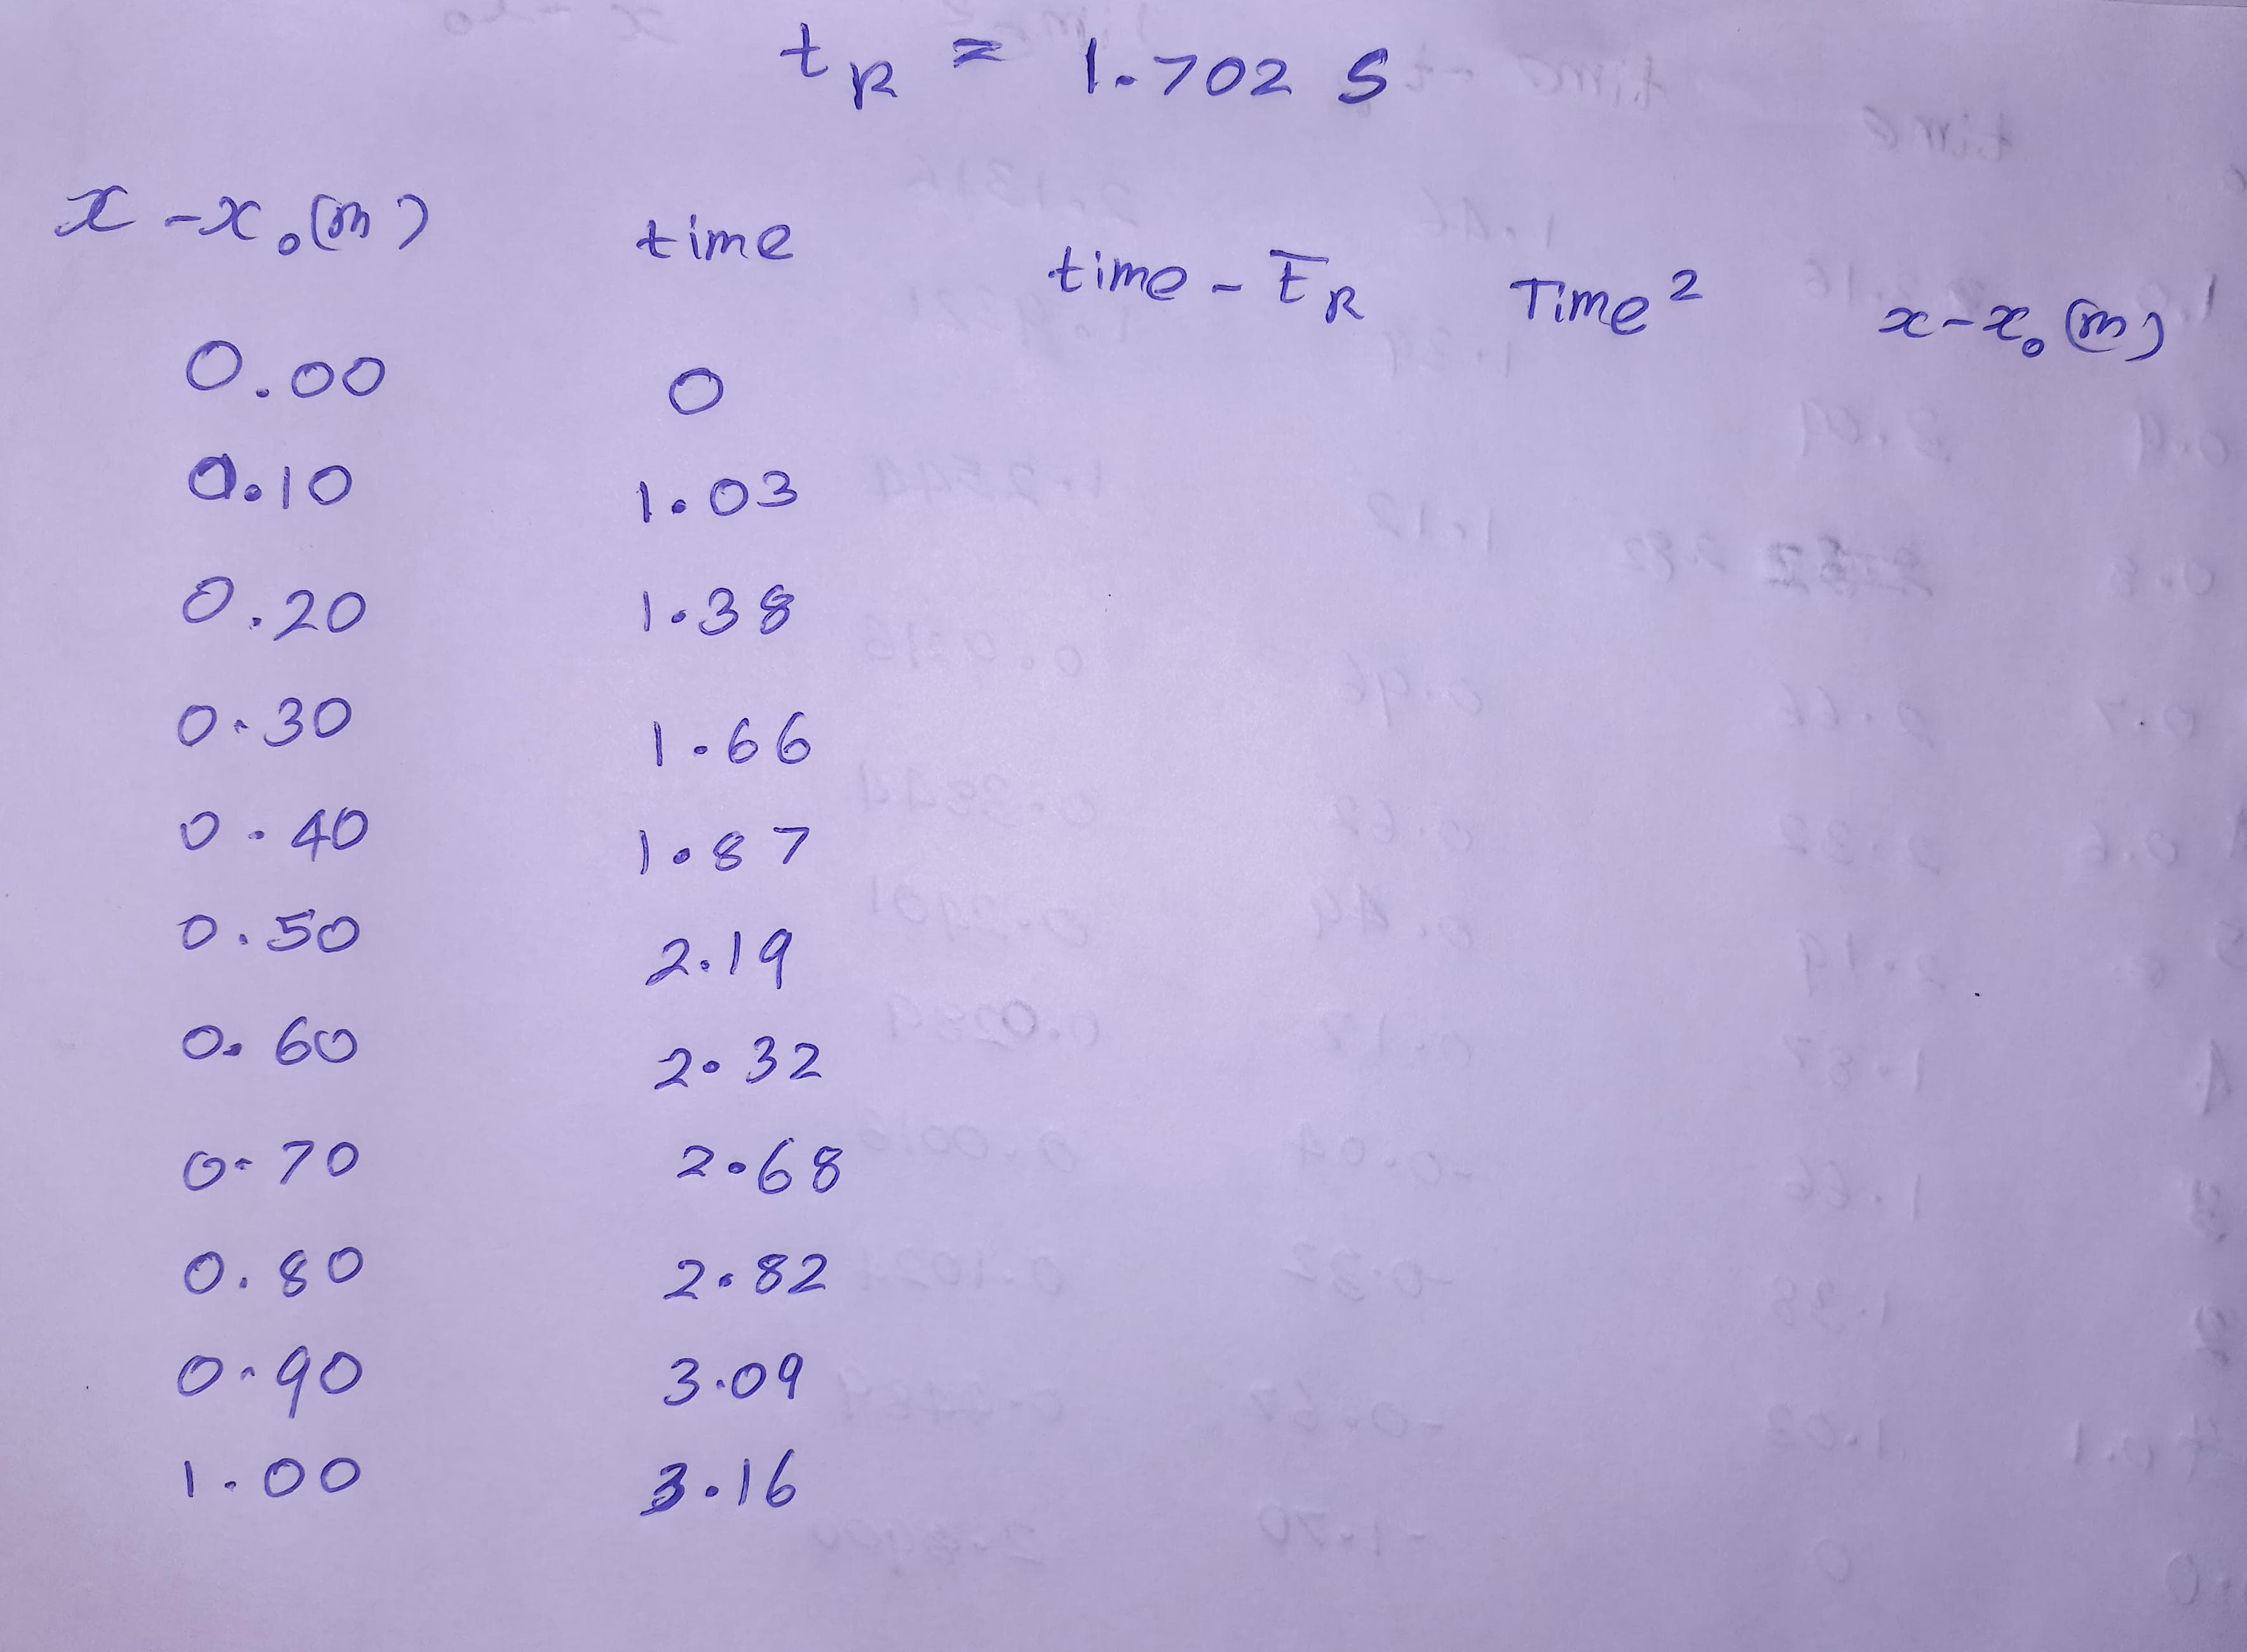 t_R = 1.702 S
x - x₀(m) time time - t̄_R Time² x - x₀(m)
0.00 0
0.10 1.03
0.20 1.38
0.30 1.66
0.40 1.87
0.50 2.19
0.60 2.32
0.70 2.68
0.80 2.82
0.90 3.09
1.00 3.16